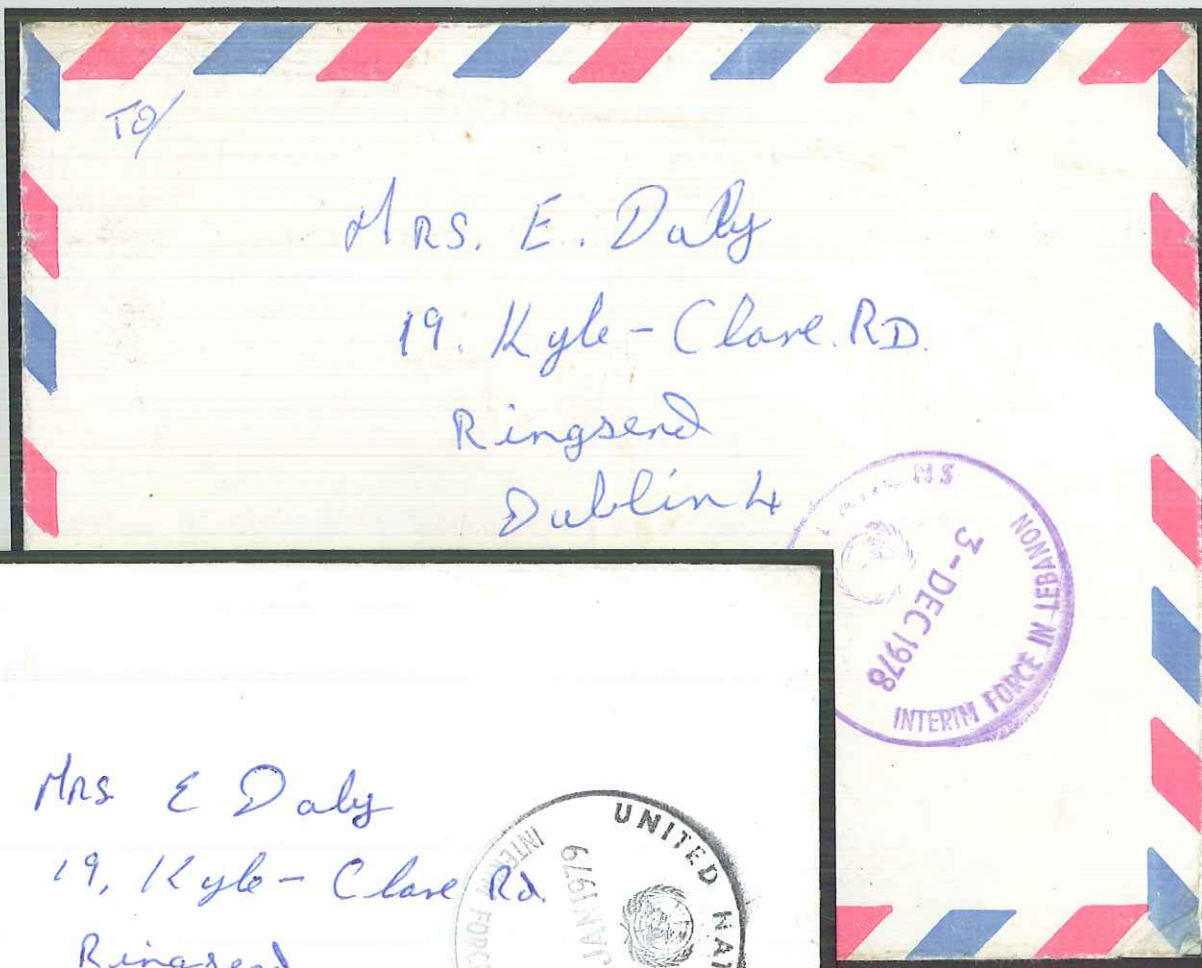 TO/
MRS. E. Daly
19. Kyle-Clare. RD.
Ringsend
Dublin 4
3-DEC 1978
INTERIM FORCE IN LEBANON
Mrs E Daly
19, Kyle-Clare Rd.
Ringsend
UNITED NAT
JAN 1979
INTERIM FORCE